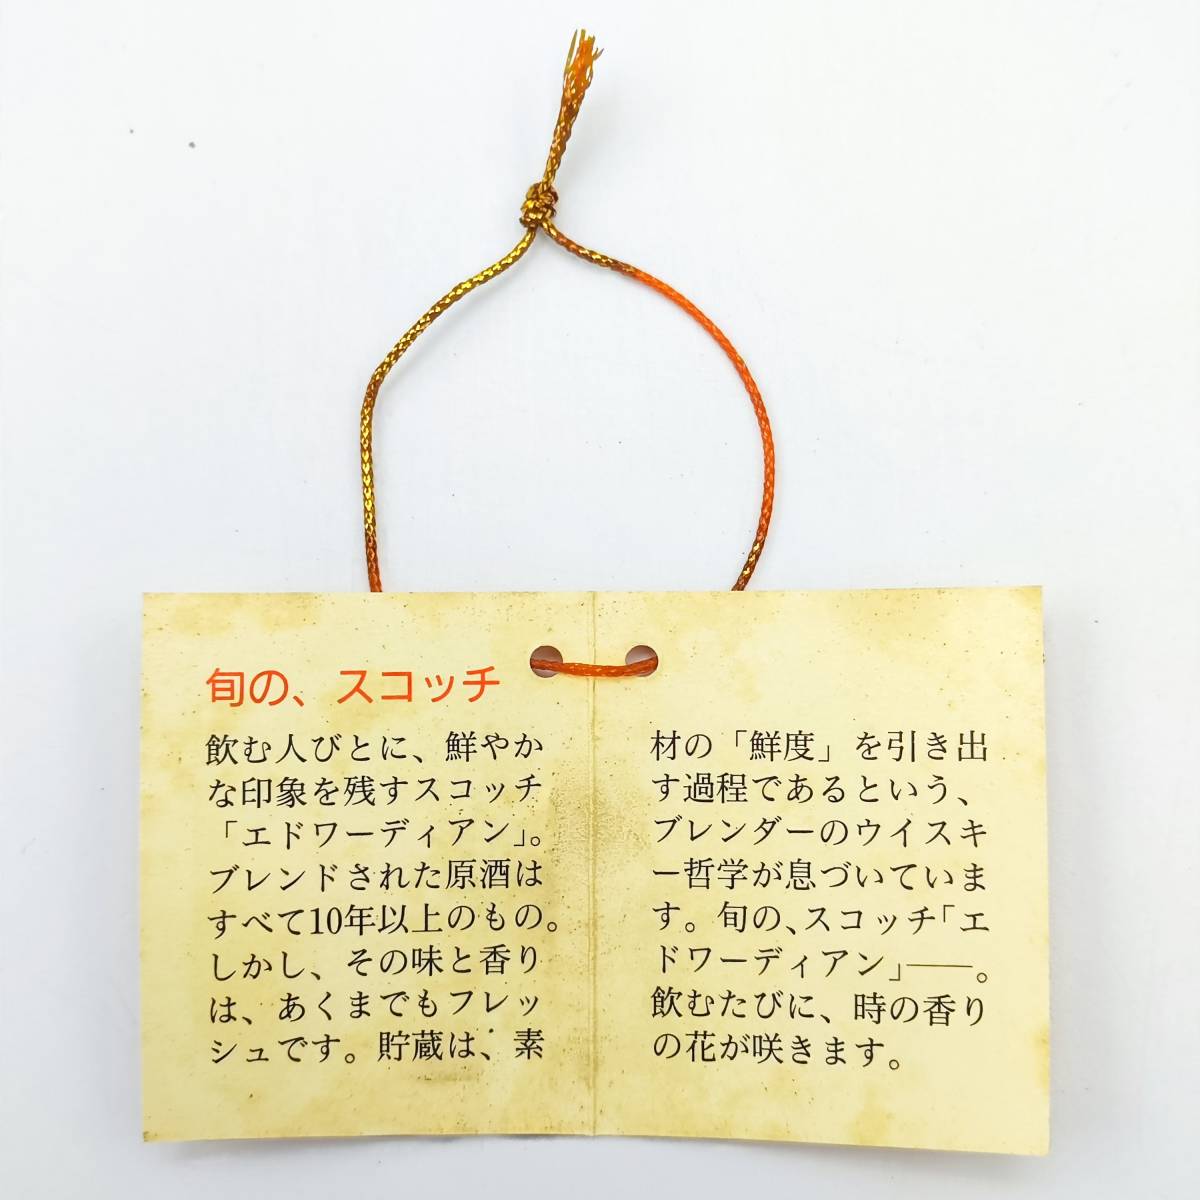 旬の、スコッチ
飲む人びとに、鮮やか
な印象を残すスコッチ
「エドワーディアン」。
ブレンドされた原酒は
すべて10年以上のもの。
しかし、その味と香り
は、あくまでもフレッ
シュです。貯蔵は、素
材の「鮮度」を引き出
す過程であるという、
ブレンダーのウイスキ
ー哲学が息づいていま
す。旬の、スコッチ「エ
ドワーディアン」──。
飲むたびに、時の香り
の花が咲きます。